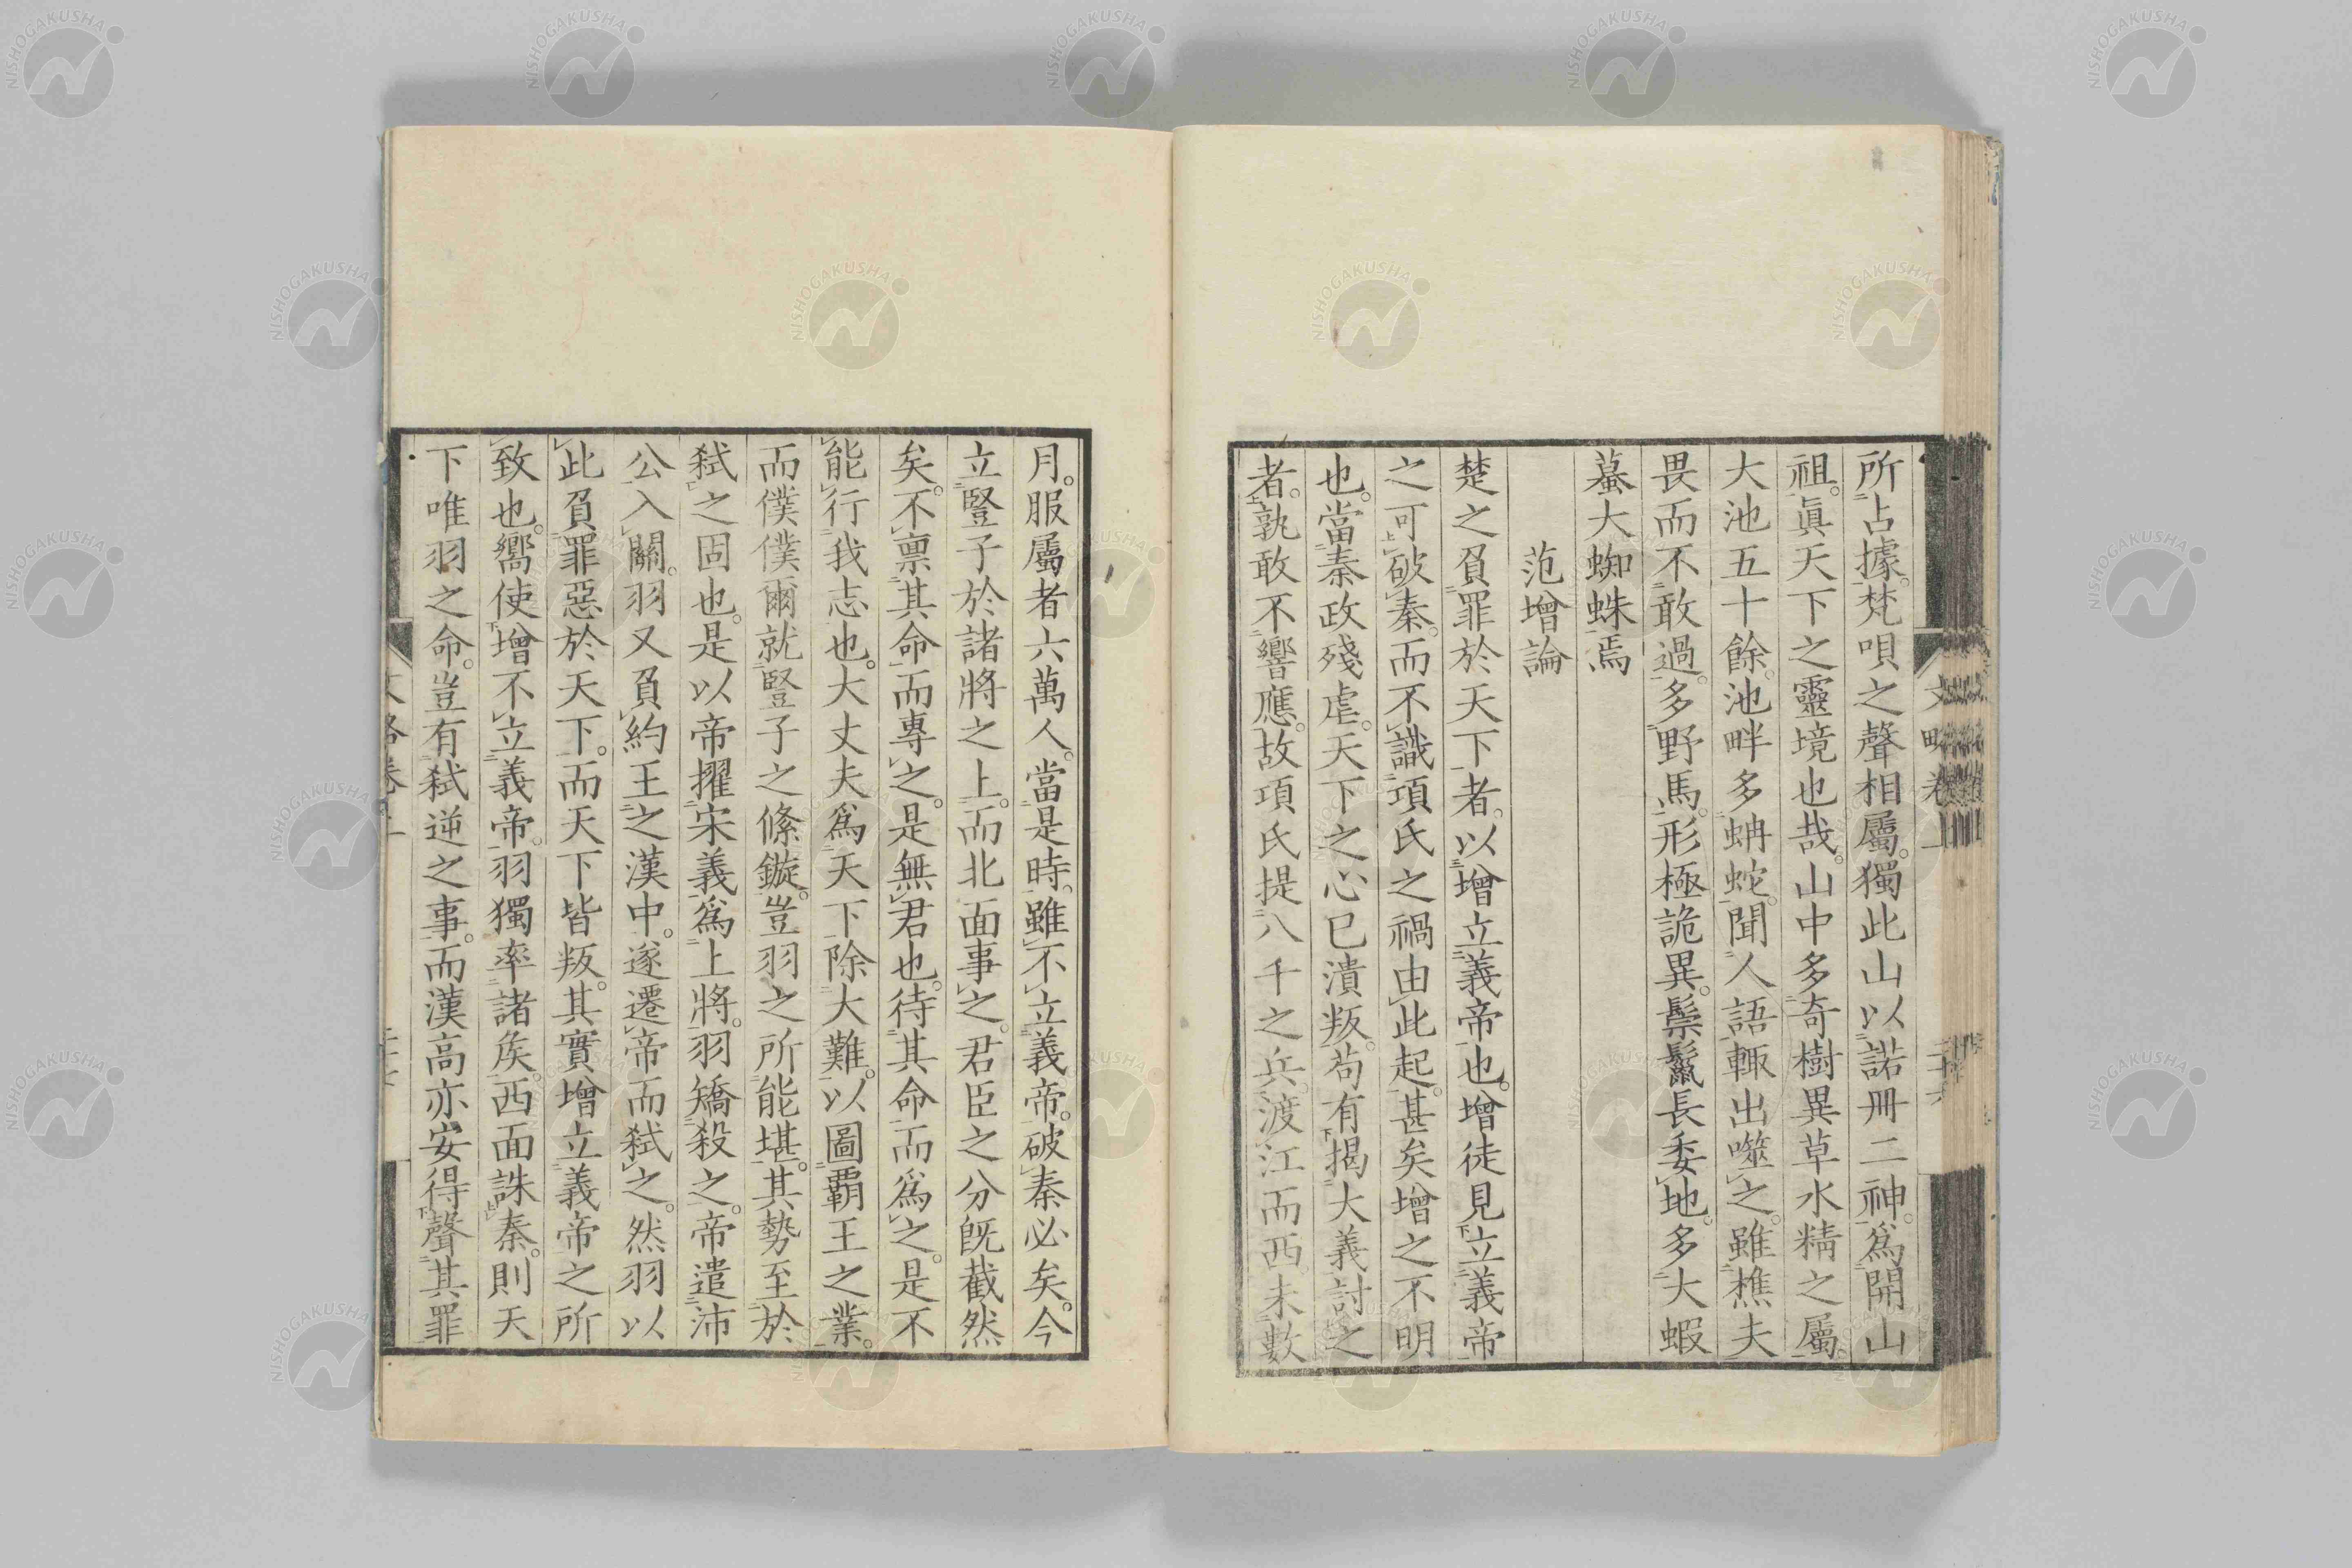 所占據。梵唄之聲相屬。獨此山以諾冊二神。爲開山
祖。眞天下之靈境也哉。山中多奇樹異草水精之屬。
大池五十餘。池畔多蚺蛇。聞人語輙出噬之。雖樵夫
畏而不敢過。多野馬。形極詭異。鬃鬣長委地。多大蝦
蟇大蜘蛛焉
范增論
楚之負罪於天下者。以增立義帝也。增徒見立義帝
之可破秦。而不識項氏之禍由此起。甚矣增之不明
也。當秦政殘虐。天下之心已潰叛。苟有揭大義討之
者。孰敢不響應。故項氏提八千之兵。渡江而西。未數
月。服屬者六萬人。當是時。雖不立義帝。破秦必矣。今
立豎子於諸將之上。而北面事之。君臣之分既截然
矣。不稟其命而專之。是無君也。待其命而爲之。是不
能行我志也。大丈夫爲天下除大難。以圖覇王之業。
而僕僕爾就豎子之絛鏇。豈羽之所能堪。其勢至於
弑之固也。是以帝擢宋義爲上將。羽矯殺之。帝遣沛
公入關。羽又負約王之漢中。遂遷帝而弑之。然羽以
此負罪惡於天下。而天下皆叛。其實增立義帝之所
致也。嚮使增不立義帝。羽獨率諸矦。西面誅秦。則天
下唯羽之命。豈有弑逆之事。而漢高亦安得聲其罪